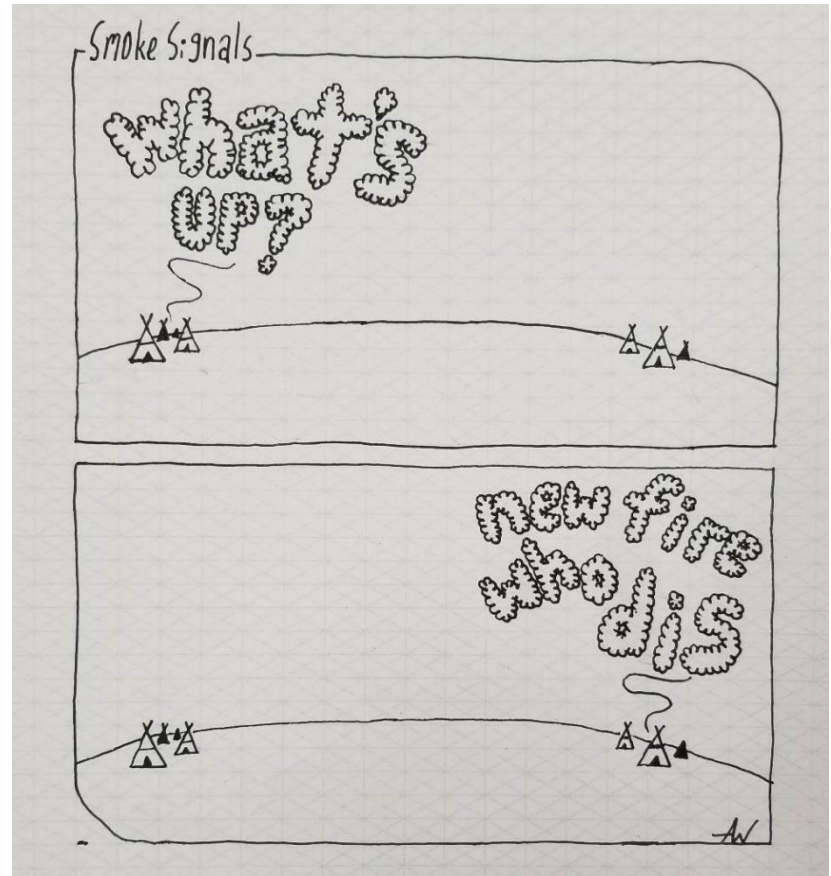 Smoke Signals
what's
up?
new fire
who dis
AW